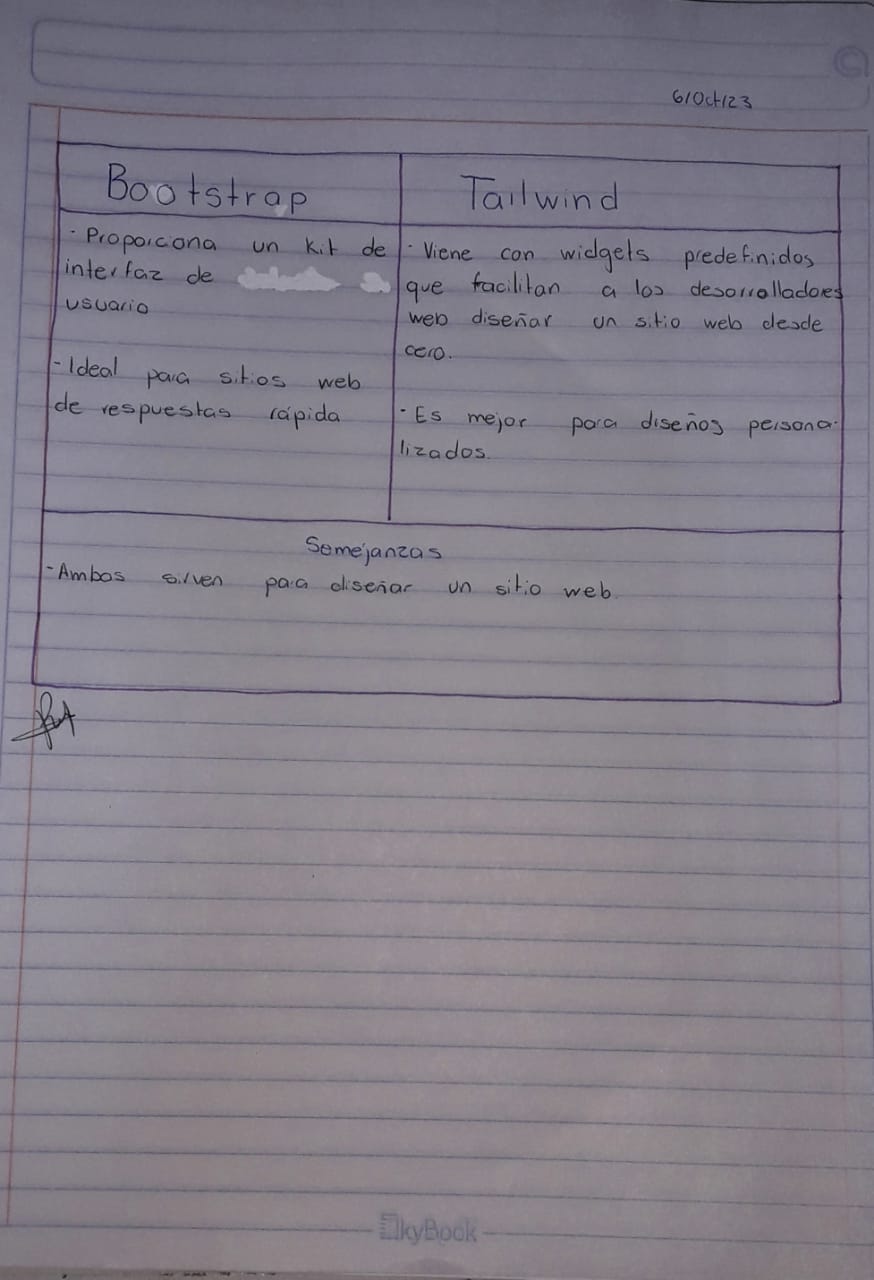 6/Oct/23
Bootstrap
Tailwind
· Proporciona un kit de
interfaz de
usuario
- Ideal para sitios web
de respuestas rápida
· Viene con widgets predefinidos
que facilitan a los desarrolladores
web diseñar un sitio web desde
cero.
· Es mejor para diseños persona-
lizados.
Semejanzas
- Ambos sirven para diseñar un sitio web.
SkyBook